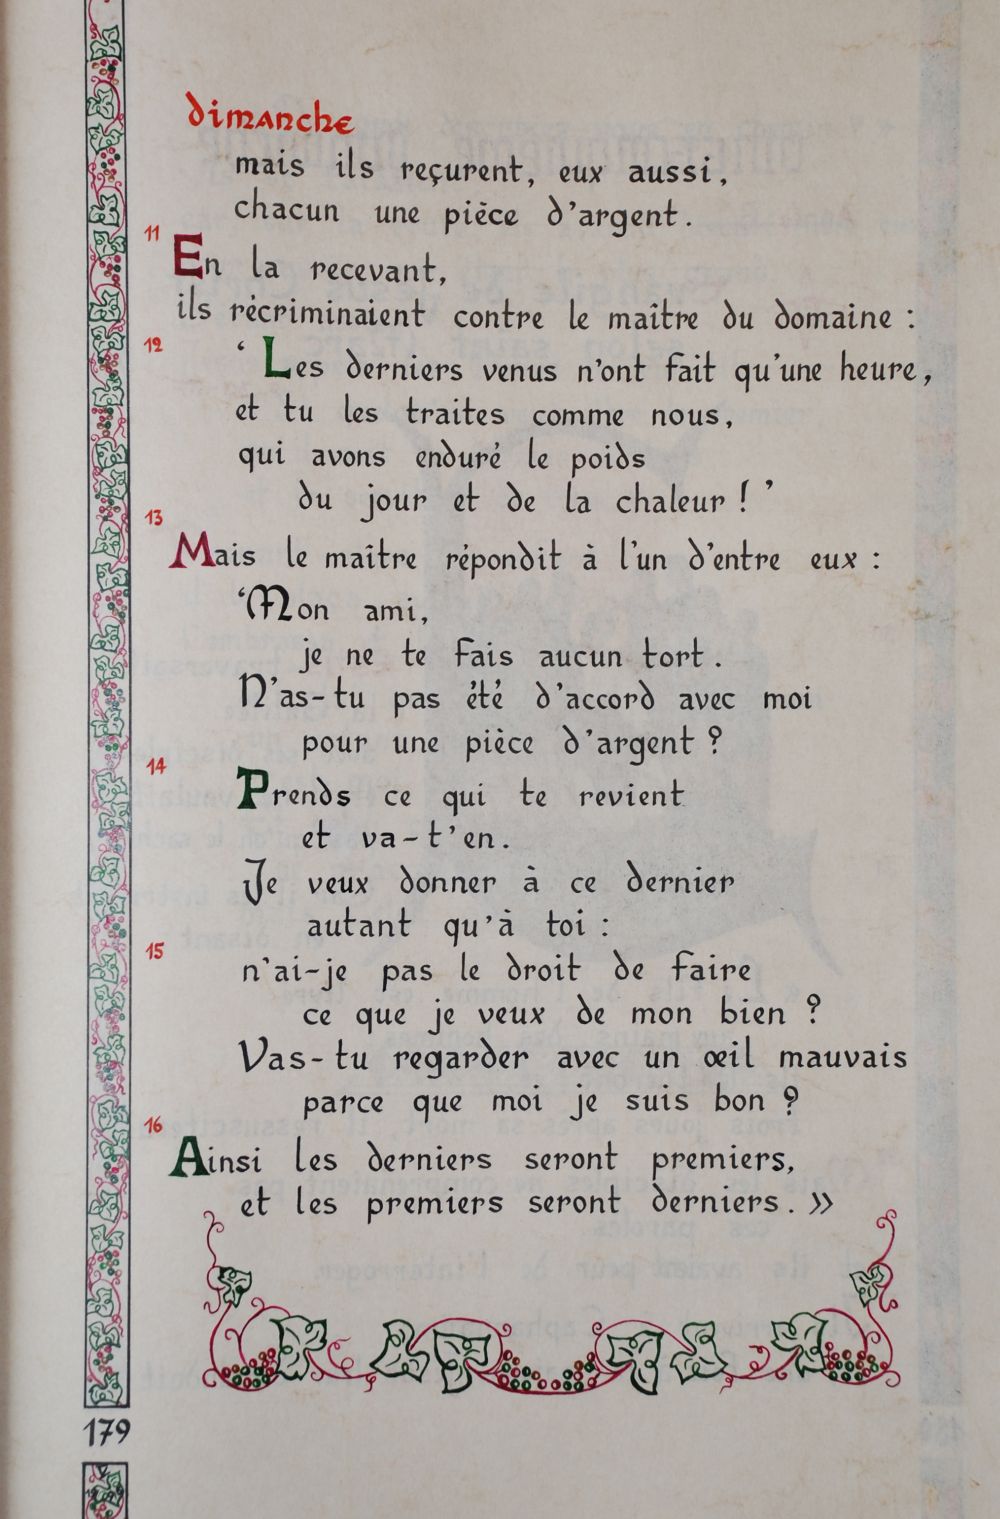 dimanche
mais ils reçurent, eux aussi,
chacun une pièce d'argent.
11
En la recevant,
ils récriminaient contre le maître du domaine :
12
‘ Les derniers venus n'ont fait qu'une heure,
et tu les traites comme nous,
qui avons enduré le poids
du jour et de la chaleur ! ’
13
Mais le maître répondit à l'un d'entre eux :
‘Mon ami,
je ne te fais aucun tort.
N'as-tu pas été d'accord avec moi
pour une pièce d'argent ?
14
Prends ce qui te revient
et va-t'en.
Je veux donner à ce dernier
autant qu'à toi :
15
n'ai-je pas le droit de faire
ce que je veux de mon bien ?
Vas-tu regarder avec un œil mauvais
parce que moi je suis bon ?
16
Ainsi les derniers seront premiers,
et les premiers seront derniers. »
179